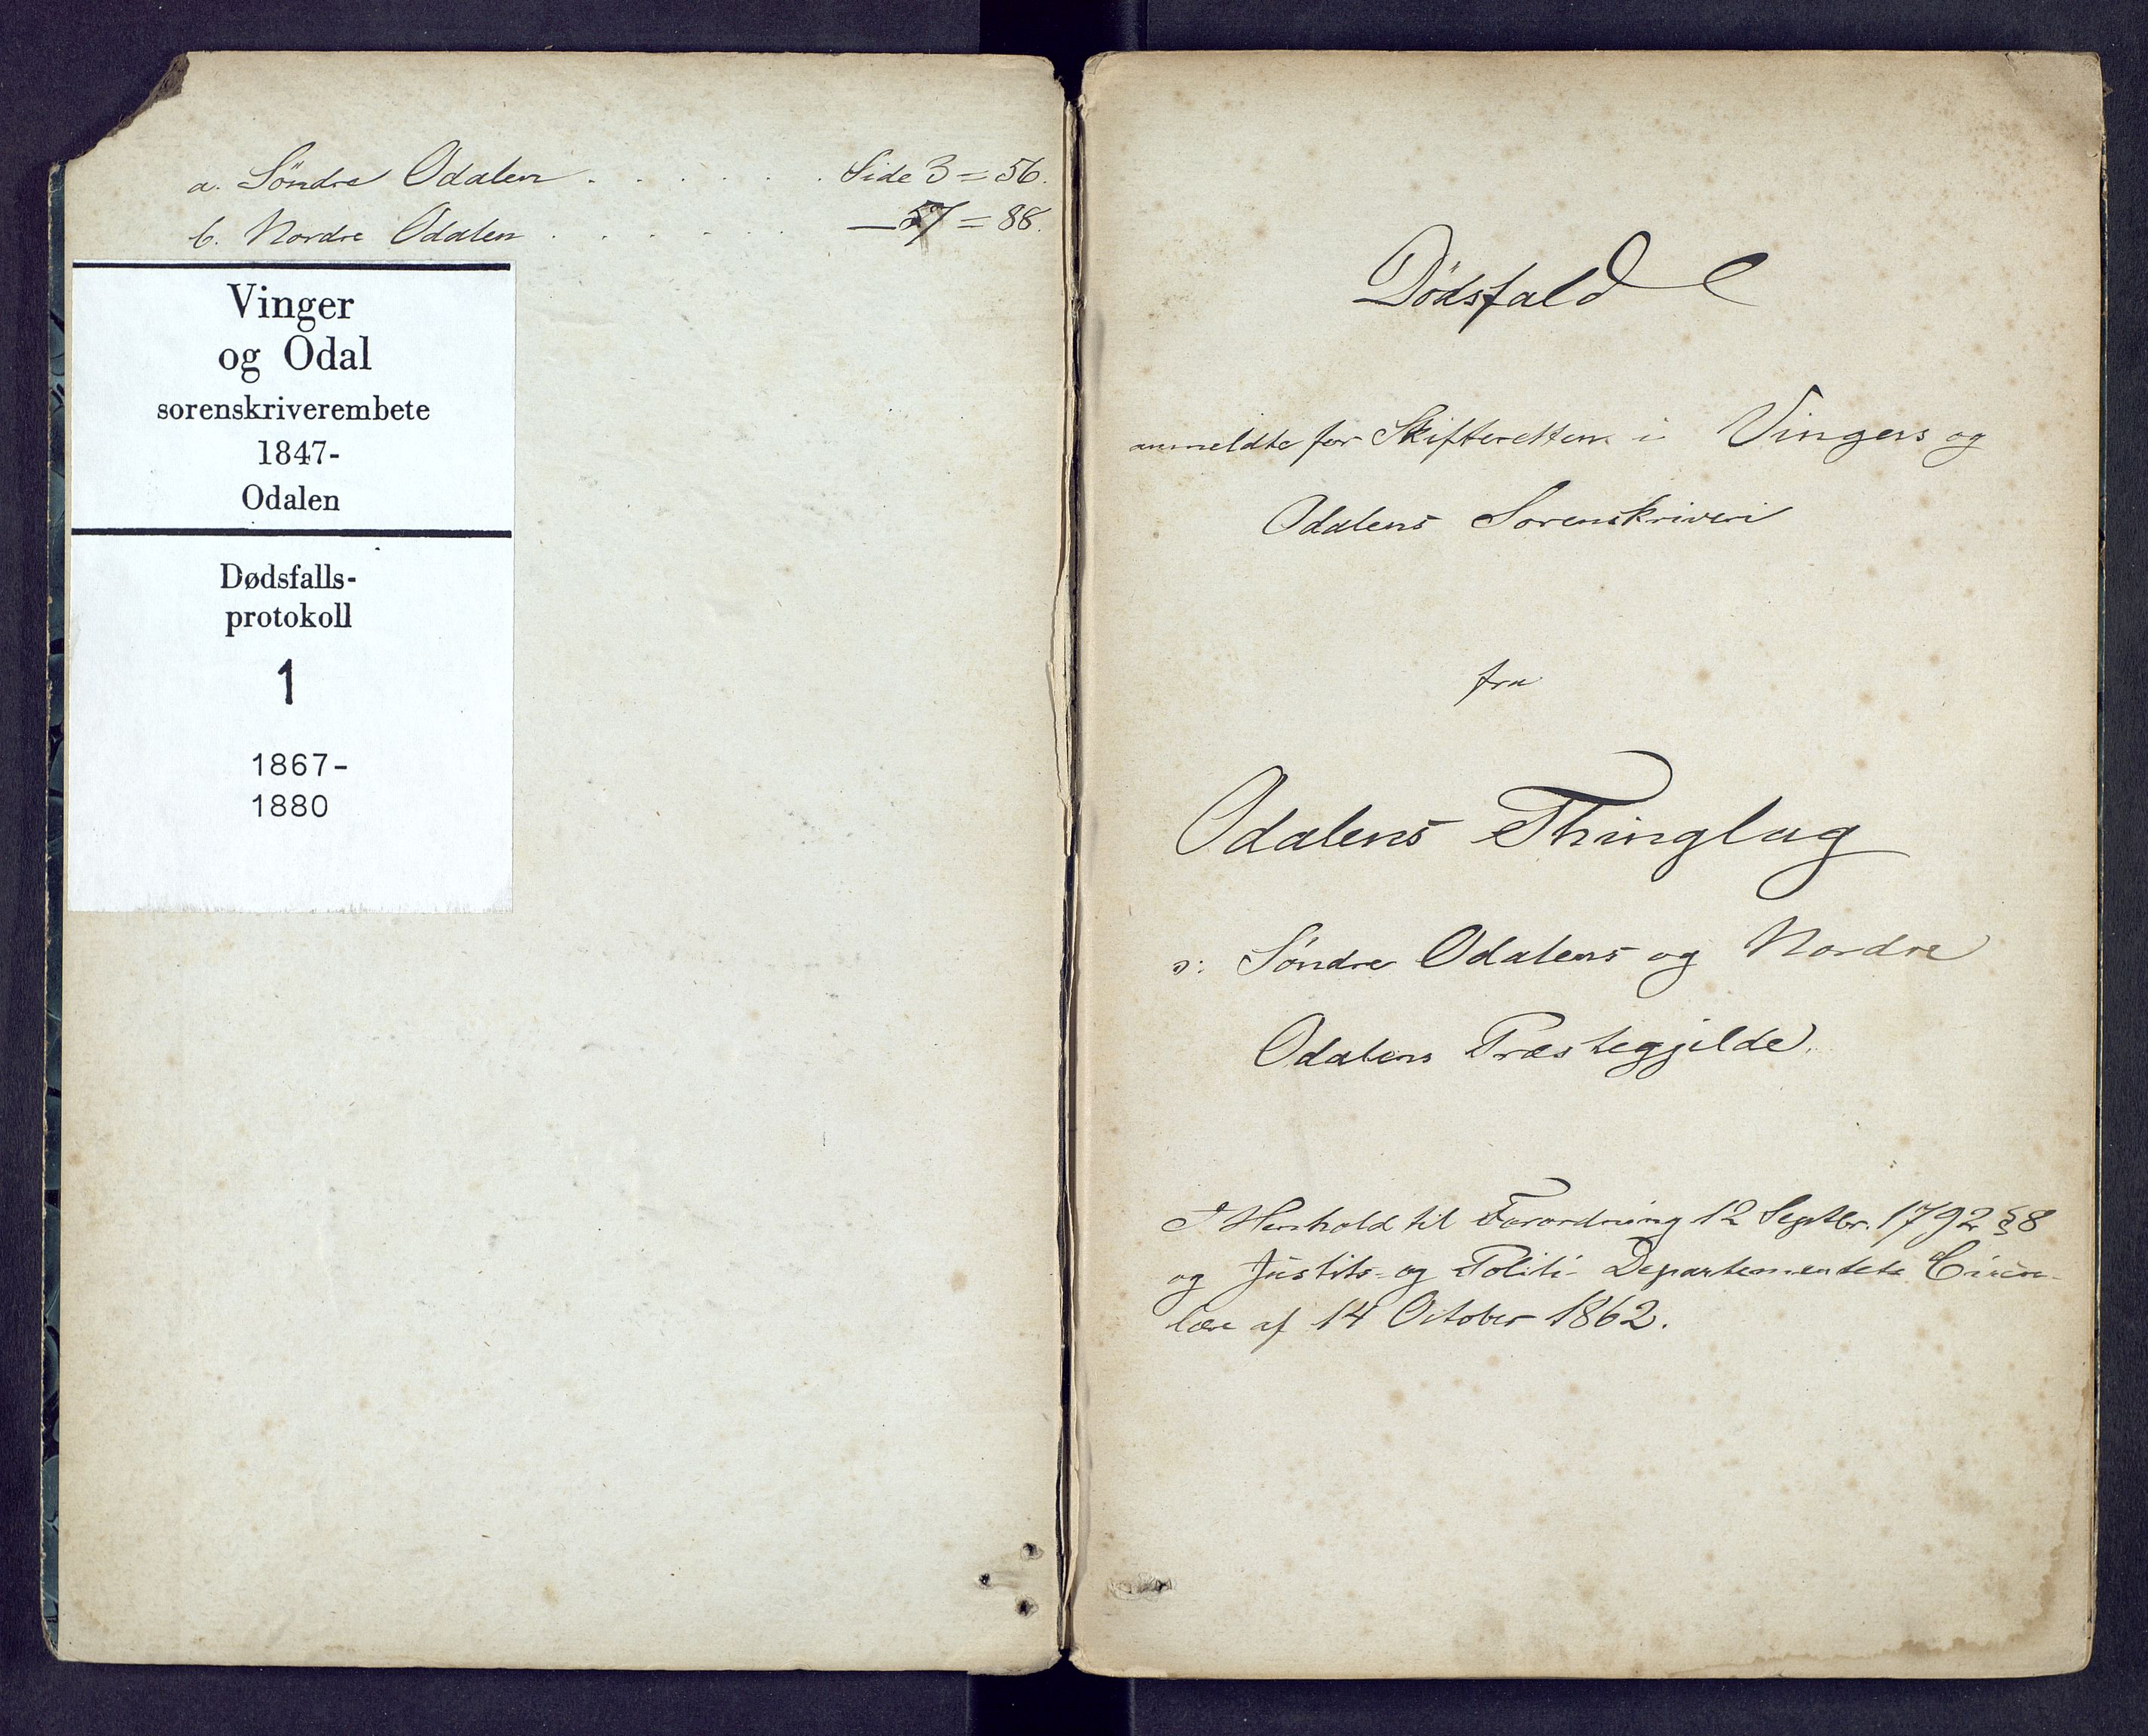 a. Söndre Odalen . . . . . . Side 3 = 56.
b. Nordre Odalen . . . . . . — 57 = 88.
Vinger
og Odal
sorenskriverembete
1847-
Odalen
Dødsfalls-
protokoll
1
1867-
1880
Dödsfald
anmeldte for Skifteretten i Vingers og
Odalens Sorenskriveri
fra
Odalens Thinglag
ɔ: Söndre Odalens og Nordre
Odalens Præstegjelde.
I Henhold til Forordning 12 Septbr. 1792 §8
og Justits- og Politi-Departementets Circu-
lære af 14 October 1862.